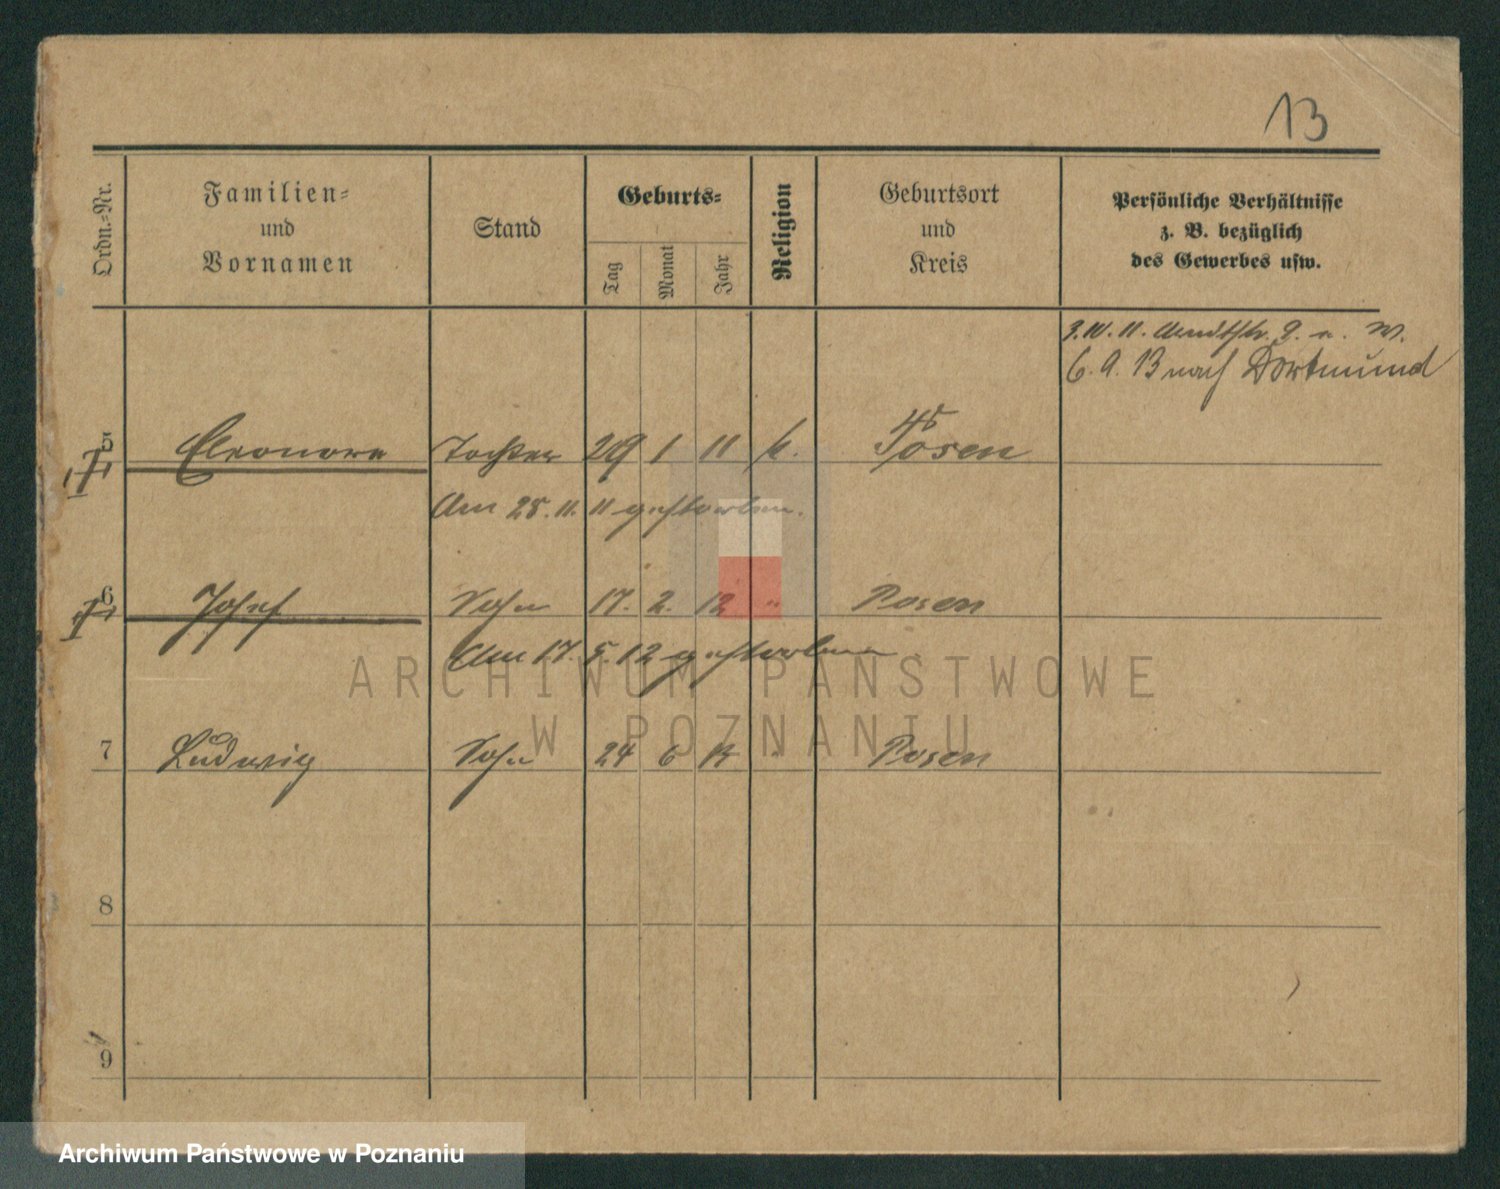 13
Ordn.-Nr.
Familien-
und
Vornamen
Stand
Geburts-
Tag
Monat
Jahr
Religion
Geburtsort
und
Kreis
Persönliche Verhältnisse
z. B. bezüglich
des Gewerbes usw.
11. 9.
6. 9. 13 nach Dortmund
5 Eleonora Tochter 29 1 11 k. Posen
Am 25. 11. 11 gestorben.
6 Josef Sohn 17. 2. 12 " Posen
Am 17. 5. 12 gestorben
7 Ludwig Sohn 24 6 13 " Posen
8
9
ARCHIWUM PAŃSTWOWE
W POZNANIU
Archiwum Państwowe w Poznaniu